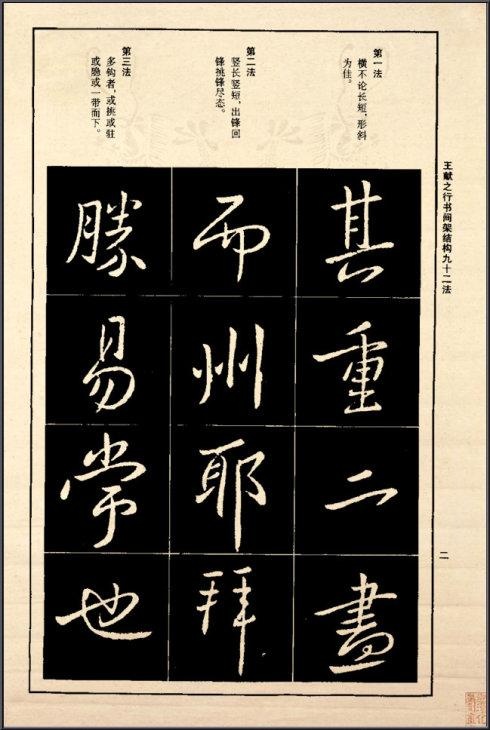 王献之行书间架结构九十二法
二
第一法
横不论长短，形斜
为佳。
其重二畫
第二法
竖长竖短，出锋回
锋挑锋尽态。
而州耶拜
第三法
多钩者，或挑或驻
或隐或一带而下。
勝易常也